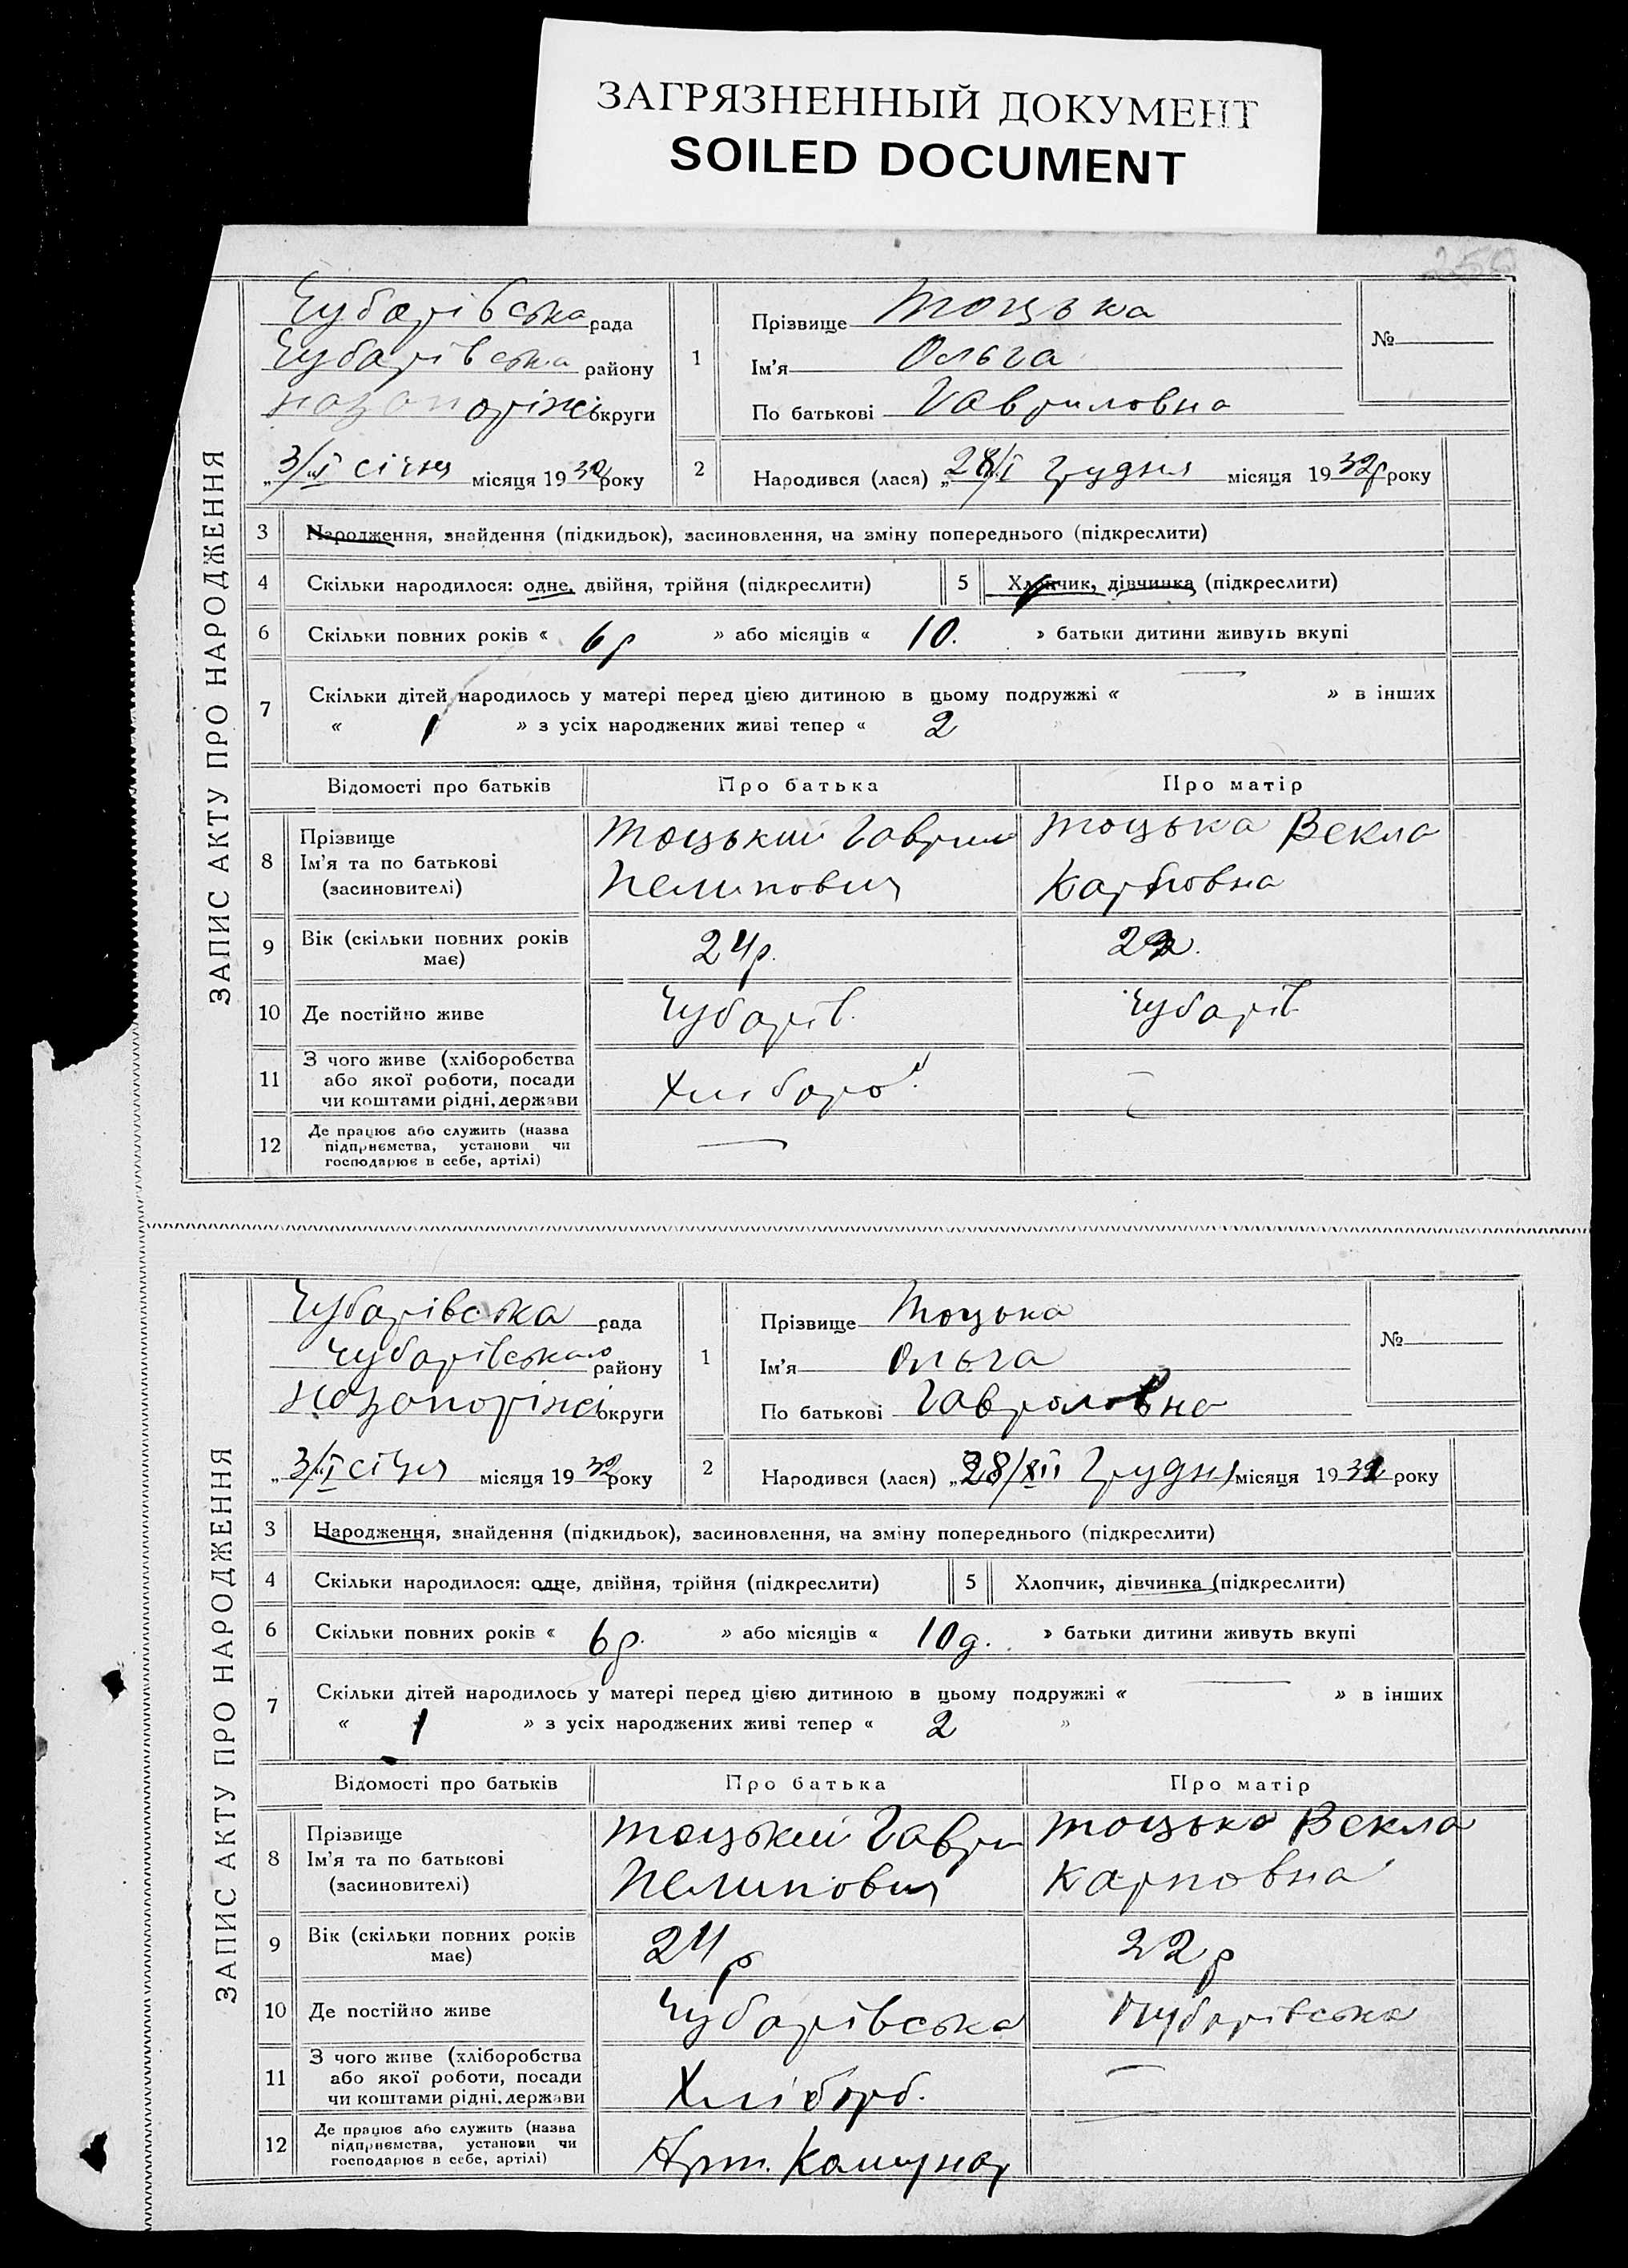 ЗАГРЯЗНЕННЫЙ ДОКУМЕНТ
SOILED DOCUMENT
250
ЗАПИС АКТУ ПРО НАРОДЖЕННЯ
Чубарівська рада
Чубарівська району
округи
3/I січня місяця 1932 року
1
Прізвище Тоцька
Ім'я Ольга
По батькові Гавриловна
№
2
Народився (лася) „28/I Грудня місяця 1932р року
3 Народження, знайдення (підкидьок), засиновлення, на зміну попереднього (підкреслити)
4 Скільки народилося: одне, двійня, трійня (підкреслити) 5 Хлопчик, дівчинка (підкреслити)
6 Скільки повних років « 6р » або місяців « 10. » батьки дитини живуть вкупі
7 Скільки дітей народилось у матері перед цією дитиною в цьому подружжі « — » в інших
« 1 » з усіх народжених живі тепер « 2 »
Відомості про батьків Про батька Про матір
8 Прізвище Ім'я та по батькові (засновителі)
Тоцький Гаврил Пелипович
Тоцька Векла Карповна
9 Вік (скільки повних років має) 24р. 22.
10 Де постійно живе Чубарів. Чубарів
11 З чого живе (хліборобства або якої роботи, посади чи коштами рідні, держави Хлібороб —
12 Де працює або служить (назва підприємства, установи чи господарює в себе, артілі) —
ЗАПИС АКТУ ПРО НАРОДЖЕННЯ
Чубарівська рада
Чубарівського району
округи
3/I січня місяця 1932 року
1
Прізвище Тоцька
Ім'я Ольга
По батькові Гавриловна
№
2
Народився (лася) „28/XII Грудня місяця 1931 року
3 Народження, знайдення (підкидьок), засиновлення, на зміну попереднього (підкреслити)
4 Скільки народилося: одне, двійня, трійня (підкреслити) 5 Хлопчик, дівчинка (підкреслити)
6 Скільки повних років « 6р. » або місяців « 10д. » батьки дитини живуть вкупі
7 Скільки дітей народилось у матері перед цією дитиною в цьому подружжі « — » в інших
« 1 » з усіх народжених живі тепер « 2 »
Відомості про батьків Про батька Про матір
8 Прізвище Ім'я та по батькові (засиновителі)
Тоцький Гаври Пелипович
Тоцька Векла Карповна
9 Вік (скільки повних років має) 24р 22р
10 Де постійно живе Чубарівська Чубарівська
11 З чого живе (хліборобства або якої роботи, посади чи коштами рідні, держави Хлібороб. —
12 Де працює або служить (назва підприємства, установи чи господарює в себе, артілі) Арт. Комунар